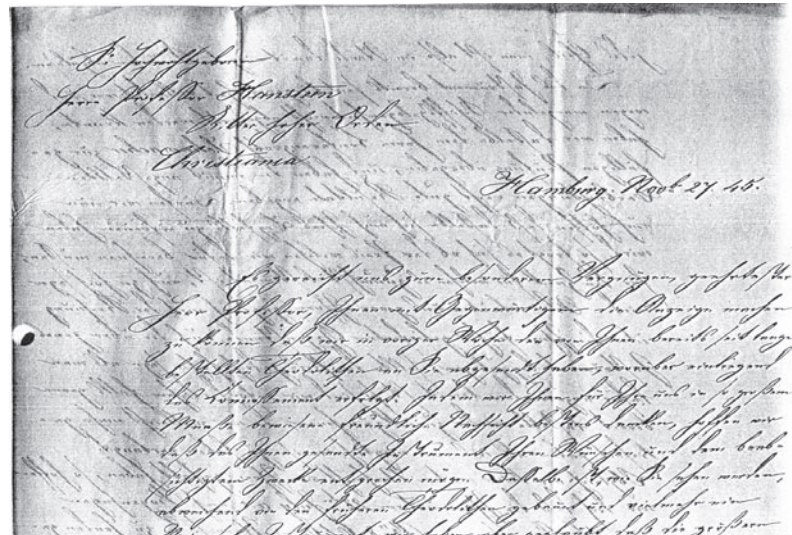 Sr Hochwohlgeboren
Herrn Professor Hansteen
Ritter hoher Orden
Christiania
Hamburg. Novbr 27. 45.
Es gereicht uns zum besonderen Vergnügen, geehrtester
Herr Professor, Ihnen mit Gegenwärtigem die Anzeige machen
zu können daß wir in voriger Woche den von Ihnen bereits seit lange
bestellten Theodolithen an Sie abgesandt haben, worüber einliegend
das Connossement erfolgt. Indem wir Ihnen für Ihre uns in so großem
Maaße bewiesene freundliche Nachsicht bestens danken, hoffen wir
daß das Ihnen gesandte Instrument Ihren Wünschen und dem beab-
sichtigten Zwecke entsprechen möge. Dasselbe ist, wie Sie sehen werden,
abweichend von den früheren Theodolithen gebaut und vielmehr ein
wir haben aber geglaubt daß die größern